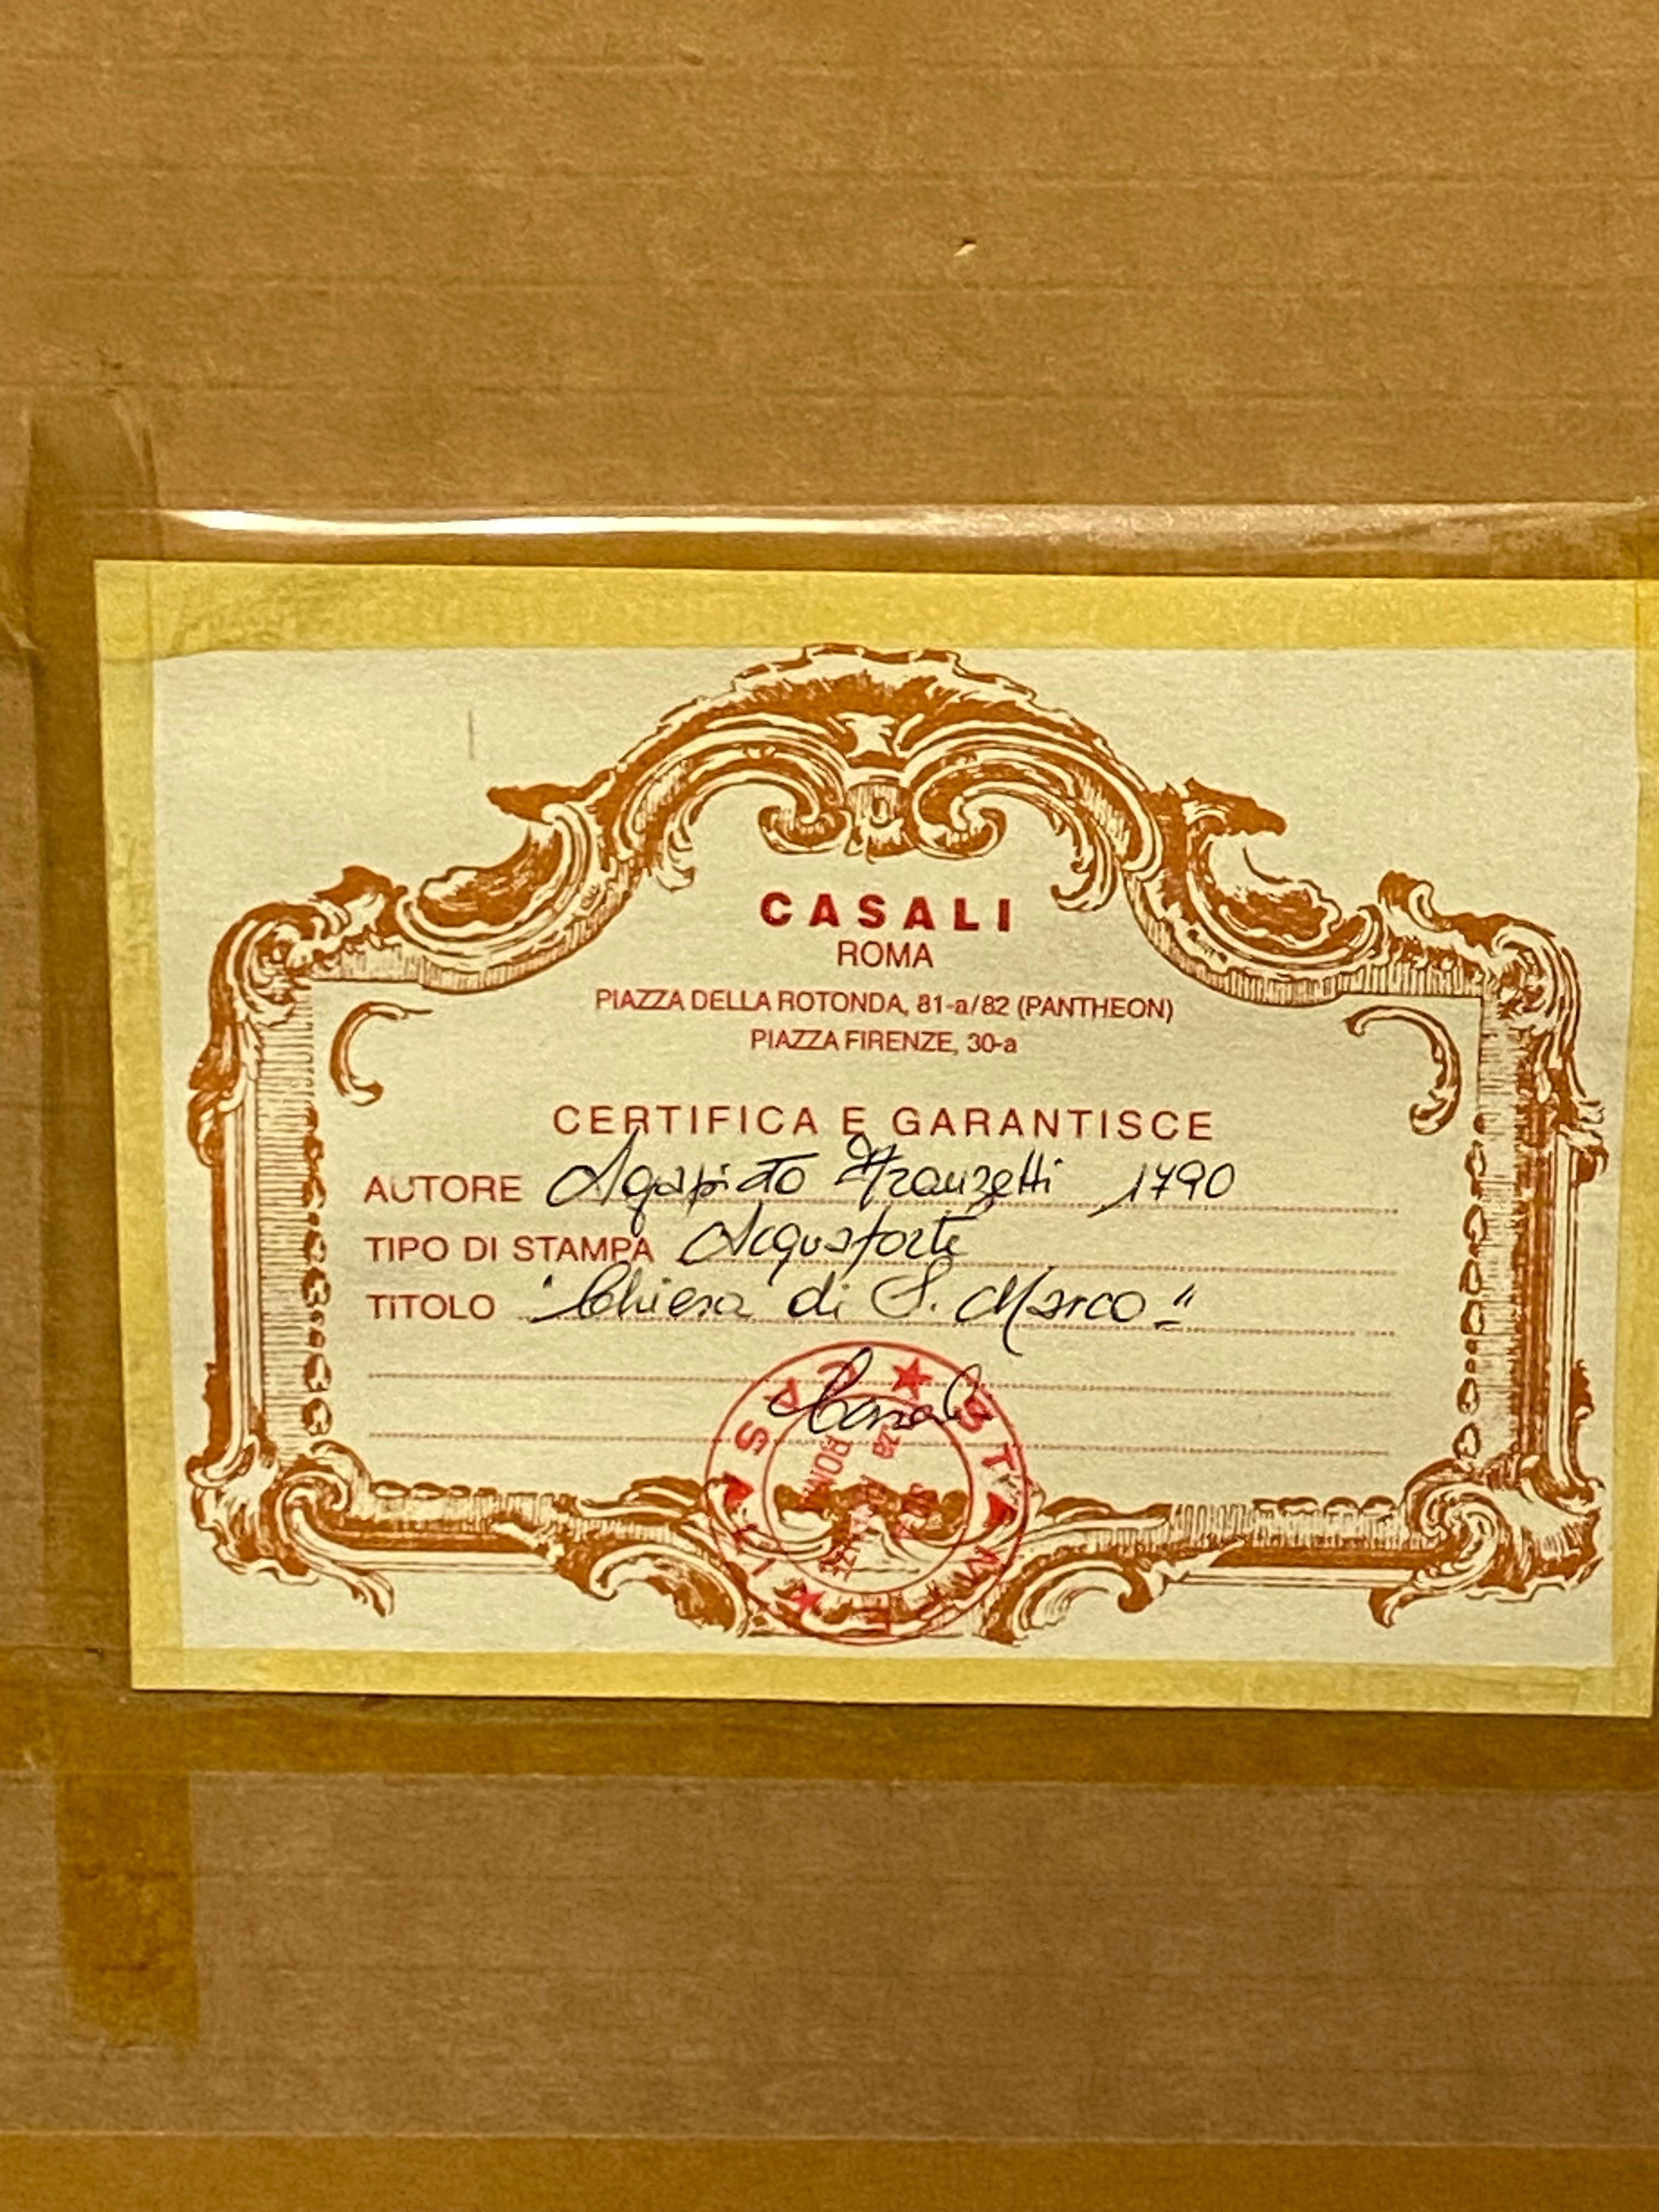 CASALI
ROMA
PIAZZA DELLA ROTONDA, 81-a/82 (PANTHEON)
PIAZZA FIRENZE, 30-a
CERTIFICA E GARANTISCE
AUTORE Agapito Franzetti 1790
TIPO DI STAMPA Acquaforte
TITOLO "Chiesa di S. Marco"
Casali
CASALI ★ STAMPE ★
ROMA